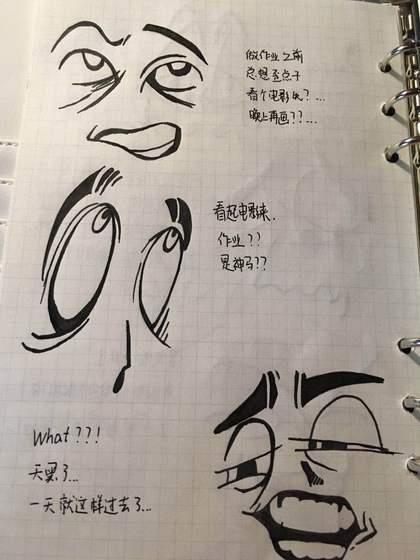 做作业之前
总想歪点子
看个电影先?...
晚上再画??...
看起电影来.
作业??
是神马??
What??!
天黑了...
一天就这样过去了...